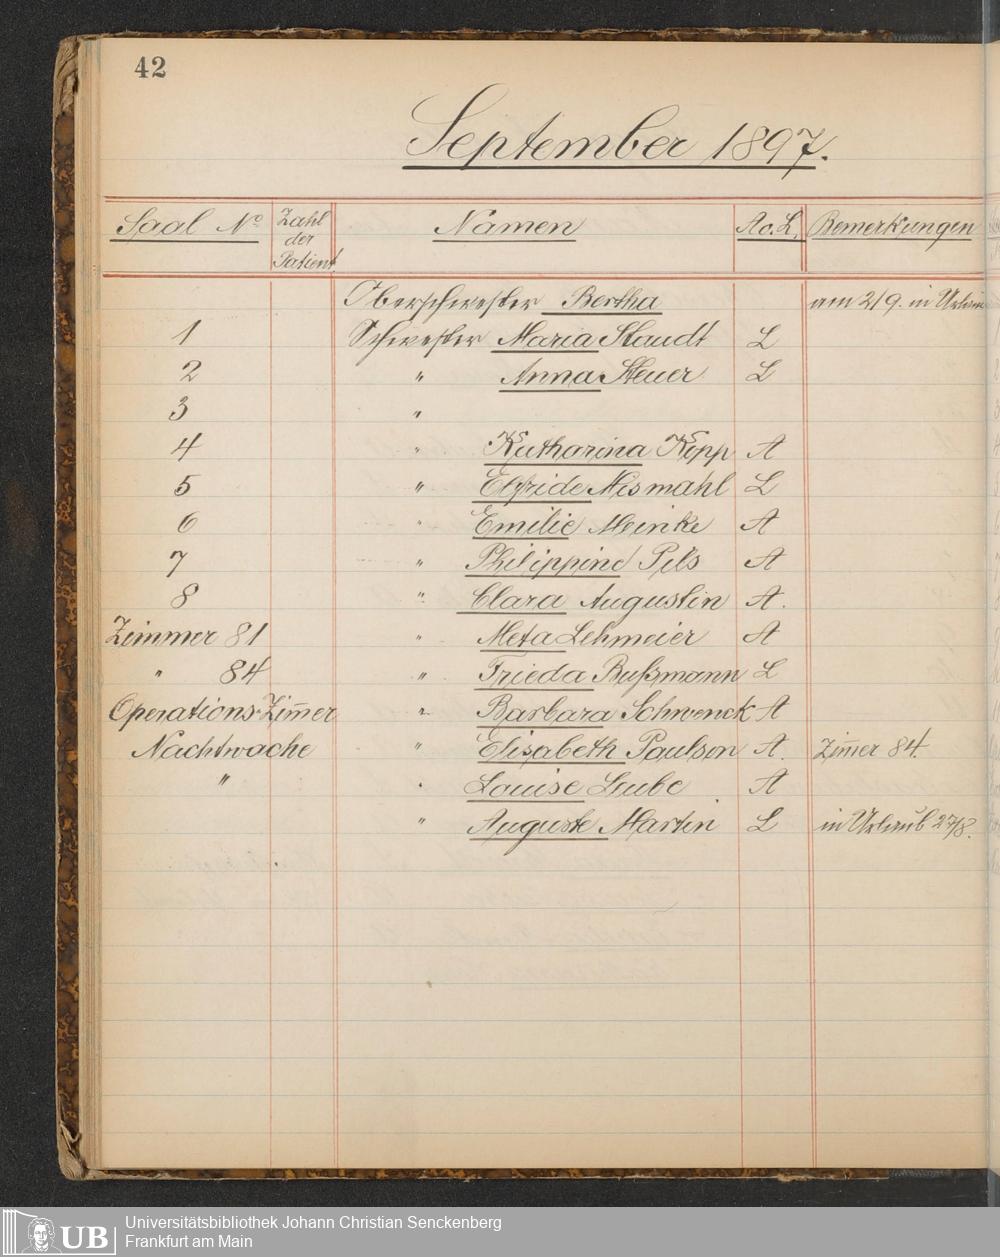 42
September 1897.
Saal No Zahl der Patient Namen A o. L. Bemerkungen
Oberschwester Bertha am 2/9. in Urlaub
1 Schwester Maria Staudt L
2 " Anna Steuer L
3 "
4 " Katharina Kopp A
5 " Elfride Nismahl L
6 " Emilie Meinke A
7 " Philippine Pils A
8 " Clara Augustin A.
Zimmer 81 " Meta Lehmeier A
" 84 " Frieda Bußmann L
Operations-Zim̅er " Barbara Schwenck A
Nachtwache " Elisabeth Paulson A. Zim̅er 84.
" " Louise Gube A
" Auguste Martin L in Urlaub 27/8.
UB
Universitätsbibliothek Johann Christian Senckenberg
Frankfurt am Main